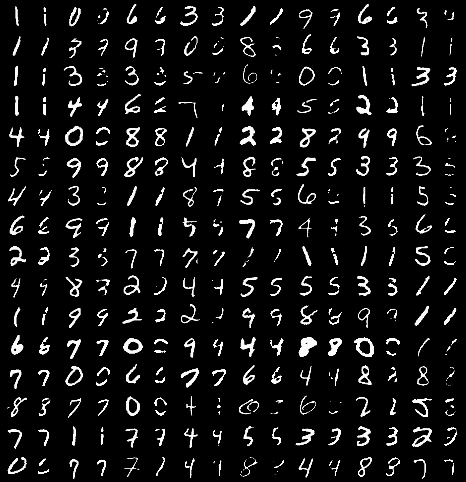 1 1 0 6 6 3 3 1 1 9 9 6 6 3
1 1 3 9 9 0 8 6 6 3 3 1 1
1 1 3 3 3 3 5 6 0 1 1 3 3
1 1 4 4 6 6 7 4 4 5 5 2 2 1 1
4 4 0 8 8 1 1 2 2 8 9 9 6
5 5 9 9 8 8 4 8 8 5 5 3 3 3
4 4 3 1 1 8 5 5 6 1 1 5
6 6 9 9 1 1 5 7 7 4 3 6 6
2 2 3 3 7 7 7 7 1 1 1 1 1 1 5
9 9 8 2 4 5 5 5 5 3 3 1 1
1 1 9 9 2 2 2 9 9 8 8 9 9 1 1
6 6 7 7 0 9 9 4 4 8 8 0 1 1
7 7 0 6 6 7 7 6 6 4 4 8 8
8 8 7 7 0 4 6 6 2 5
7 7 1 1 7 7 4 4 5 5 3 3 3 3 2
0 7 7 7 4 4 8 4 4 8 8 7 7